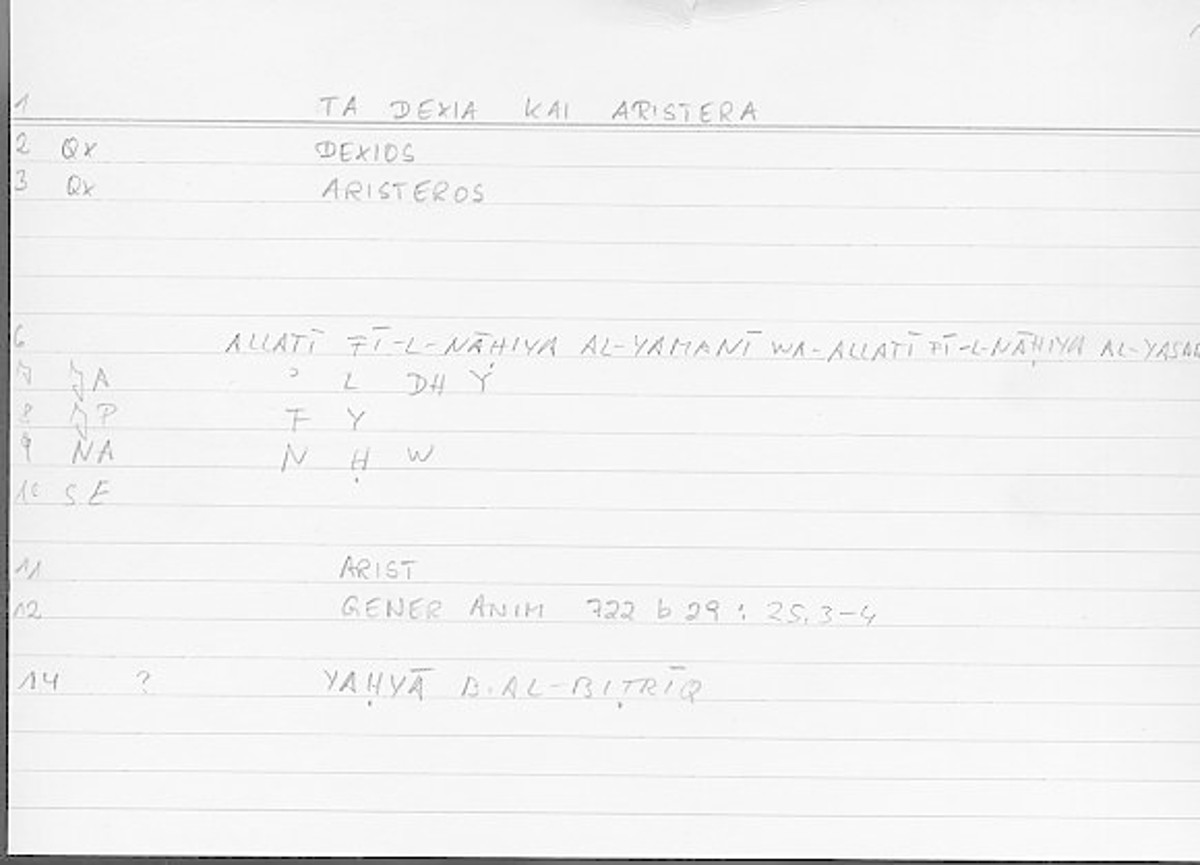 1 TA DEXIA KAI ARISTERA
2 Qx DEXIOS
3 Qx ARISTEROS
6 ALLATĪ FĪ-L-NĀḤIYA AL-YAMANĪ WA-ALLATĪ FĪ-L-NĀḤIYA AL-YASAR
7 JA ʾ L DH Y
8 JP F Y
9 NA N Ḥ W
10 SE
11 ARIST
12 GENER ANIM 722 b 29 : 25.3-4
14 ? YAḤYĀ B. AL-BIṬRĪQ